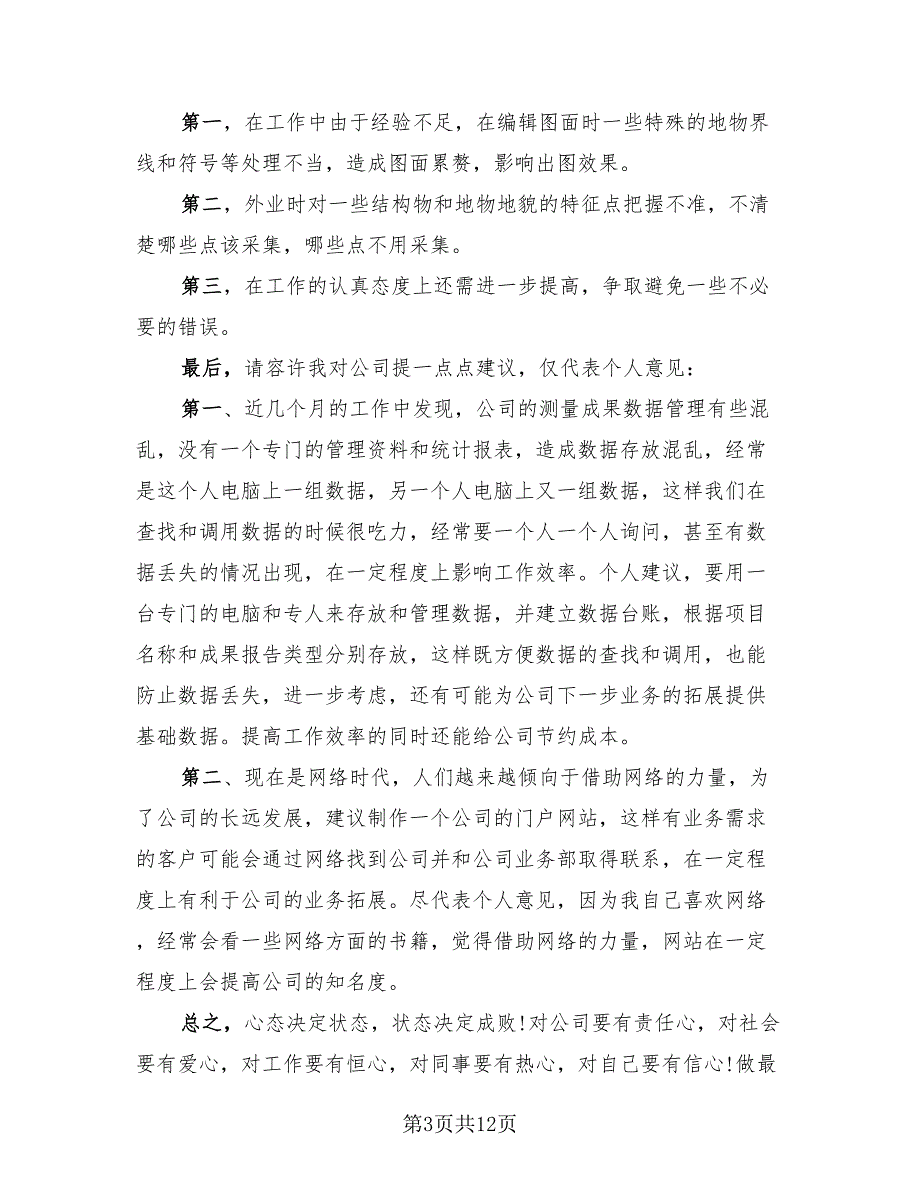 第一，在工作中由于经验不足，在编辑图面时一些特殊的地物界
线和符号等处理不当，造成图面累赘，影响出图效果。
第二，外业时对一些结构物和地物地貌的特征点把握不准，不清
楚哪些点该采集，哪些点不用采集。
第三，在工作的认真态度上还需进一步提高，争取避免一些不必
要的错误。
最后，请容许我对公司提一点点建议，仅代表个人意见：
第一、近几个月的工作中发现，公司的测量成果数据管理有些混
乱，没有一个专门的管理资料和统计报表，造成数据存放混乱，经常
是这个人电脑上一组数据，另一个人电脑上又一组数据，这样我们在
查找和调用数据的时候很吃力，经常要一个人一个人询问，甚至有数
据丢失的情况出现，在一定程度上影响工作效率。个人建议，要用一
台专门的电脑和专人来存放和管理数据，并建立数据台账，根据项目
名称和成果报告类型分别存放，这样既方便数据的查找和调用，也能
防止数据丢失，进一步考虑，还有可能为公司下一步业务的拓展提供
基础数据。提高工作效率的同时还能给公司节约成本。
第二、现在是网络时代，人们越来越倾向于借助网络的力量，为
了公司的长远发展，建议制作一个公司的门户网站，这样有业务需求
的客户可能会通过网络找到公司并和公司业务部取得联系，在一定程
度上有利于公司的业务拓展。尽代表个人意见，因为我自己喜欢网络
，经常会看一些网络方面的书籍，觉得借助网络的力量，网站在一定
程度上会提高公司的知名度。
总之，心态决定状态，状态决定成败！对公司要有责任心，对社会
要有爱心，对工作要有恒心，对同事要有热心，对自己要有信心！做最
第3页共12页